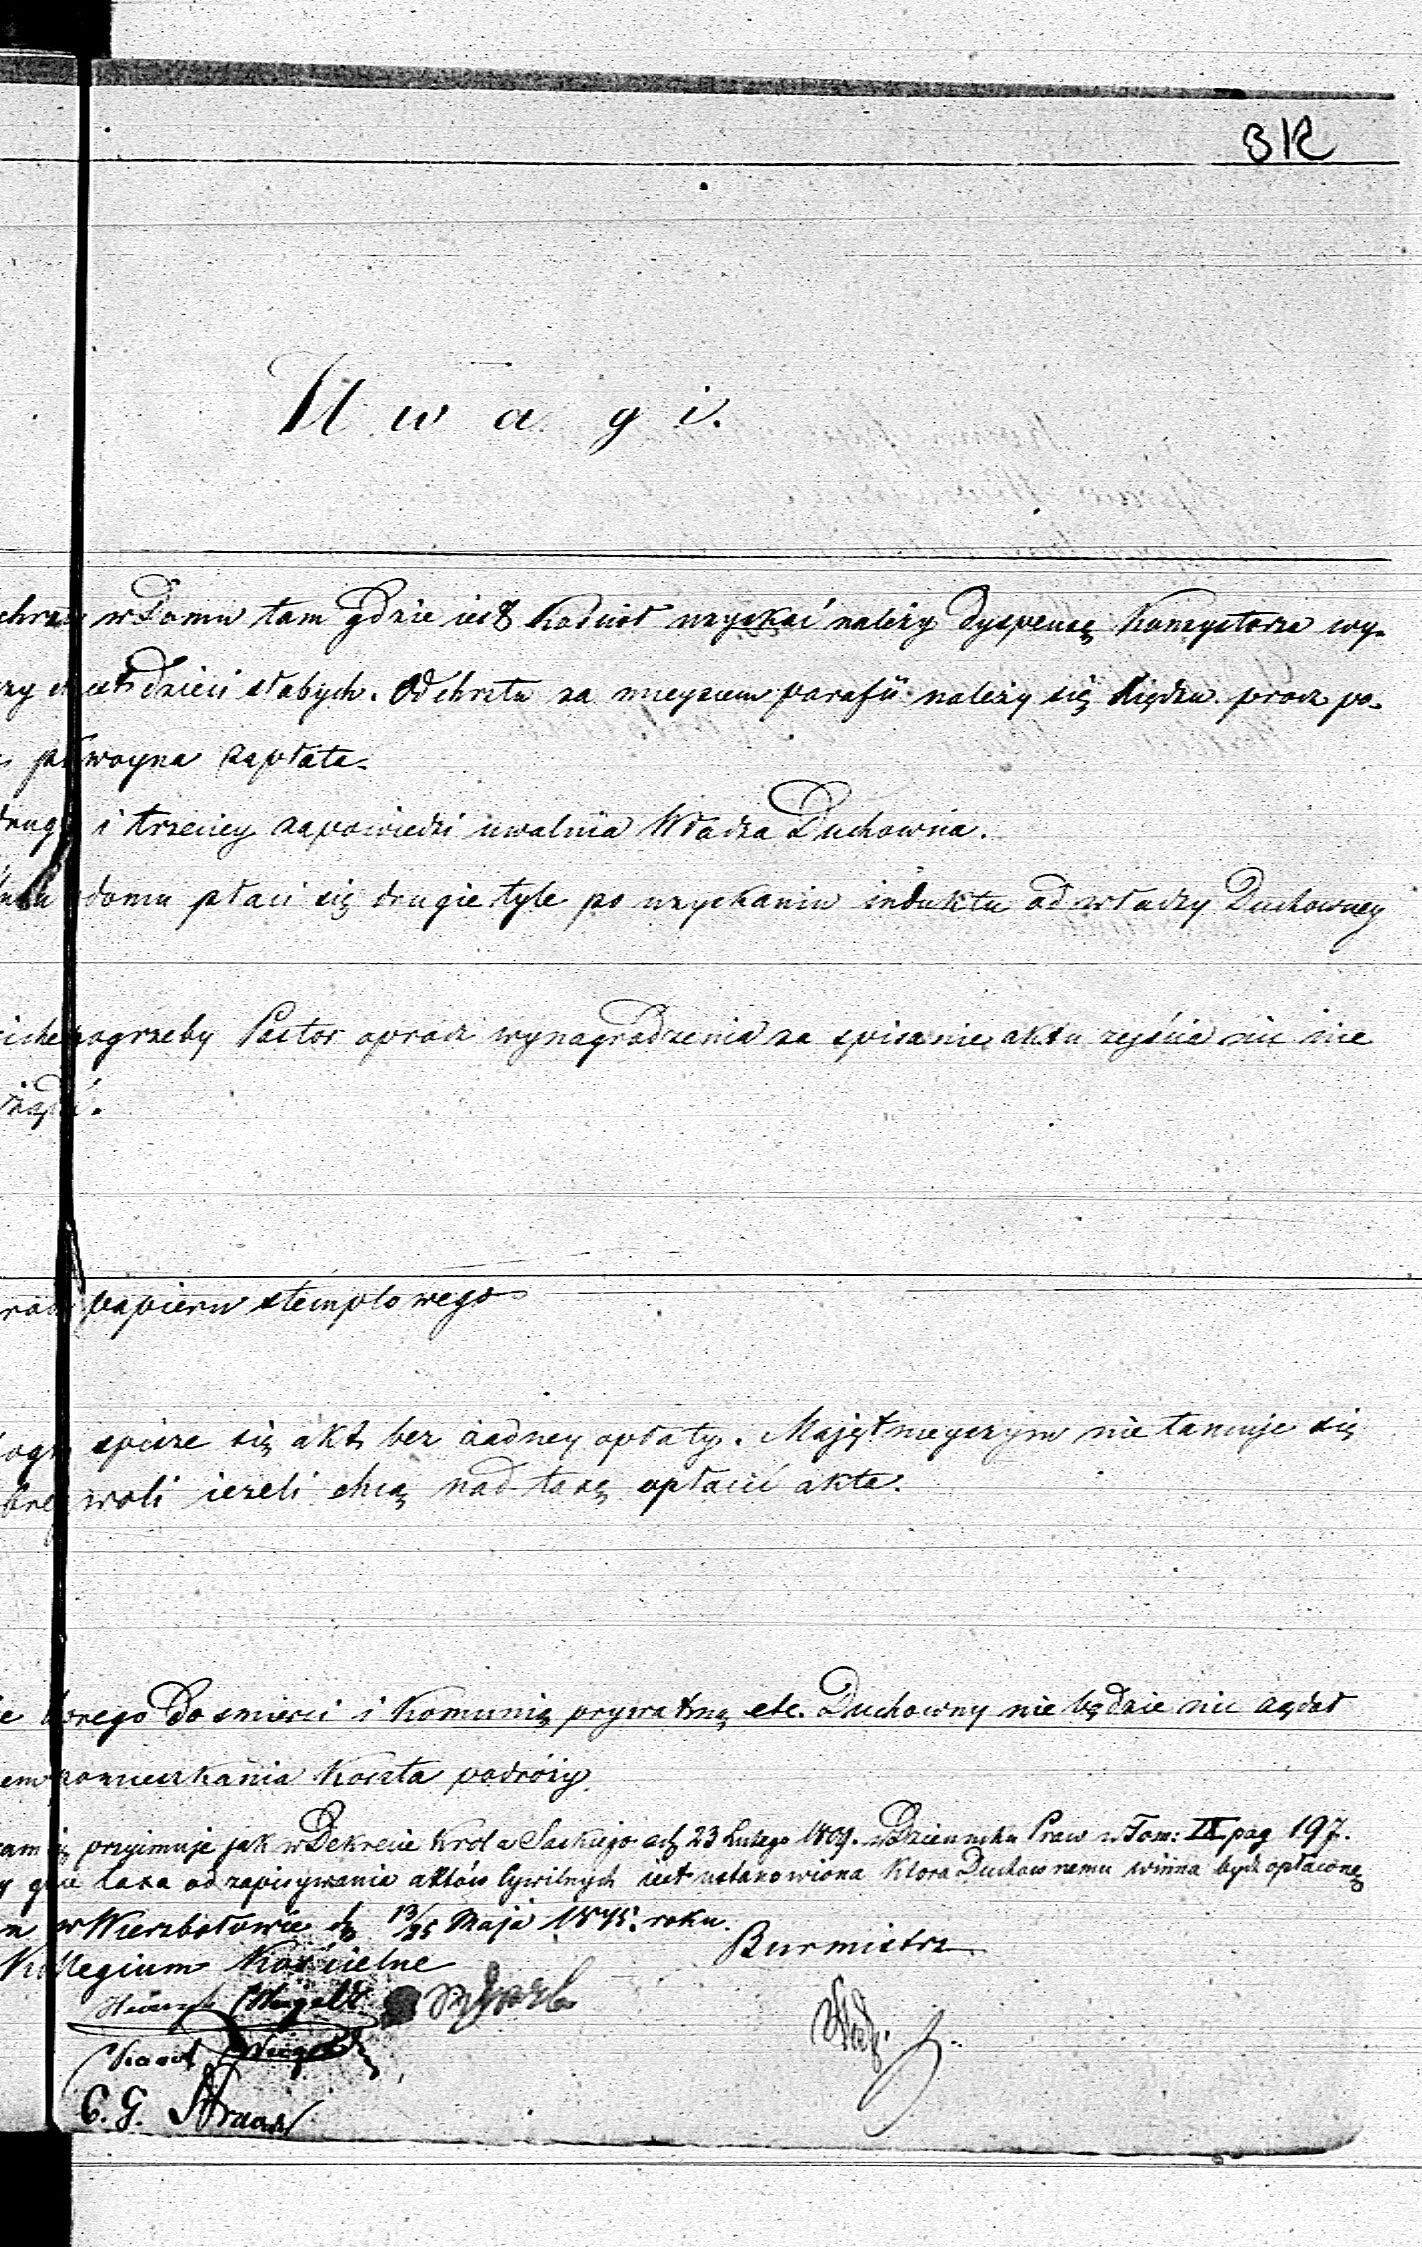 312
Uwagi.
w Domu tam gdzie iest Kościoł uzyskać należy dyspensę Konsystorza wy-
dzieci słabych. Od chrztu za mieyscem parafii należy się Xiędzu procz po-
zapłata.
i trzeciey zapowiedzi uwalnia Władza Duchowna.
domu płaci się drugie tyle po uzyskaniu indultu od władzy Duchowney
pogrzeby Pastor oprocz wynagrodzenia za spisanie aktu zejścia nic nie
papieru stemplowego
spisze się akt bez żadney opłaty. Maiętnieyszym nie tamuje się
woli iezeli chcą nad taxę opłacić akta.
chorego do smierci i Komunią prywatną etc. Duchowny nie będzie nic żądał
zamieszkania koszta podróży.
przyimuje jak w Dekrecie Krola Saskiego z d. 23 Lutego 1809. w Dzienniku Praw w Tom: IX pag 197.
taxa od zapisywania aktów Cywilnych iest ustanowiona ktora Duchownemu winna bydz opłaconą
w Wierzbołowie d. 13/25 Maja 1845. roku.
Kollegium Kościelne
Burmistrz
C. G.